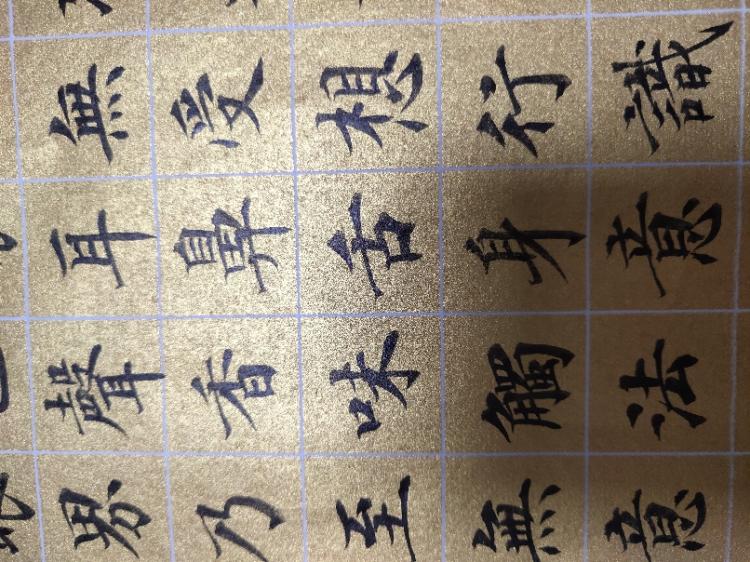 無受想行識
耳鼻舌身意
聲香味觸法
界乃至無意